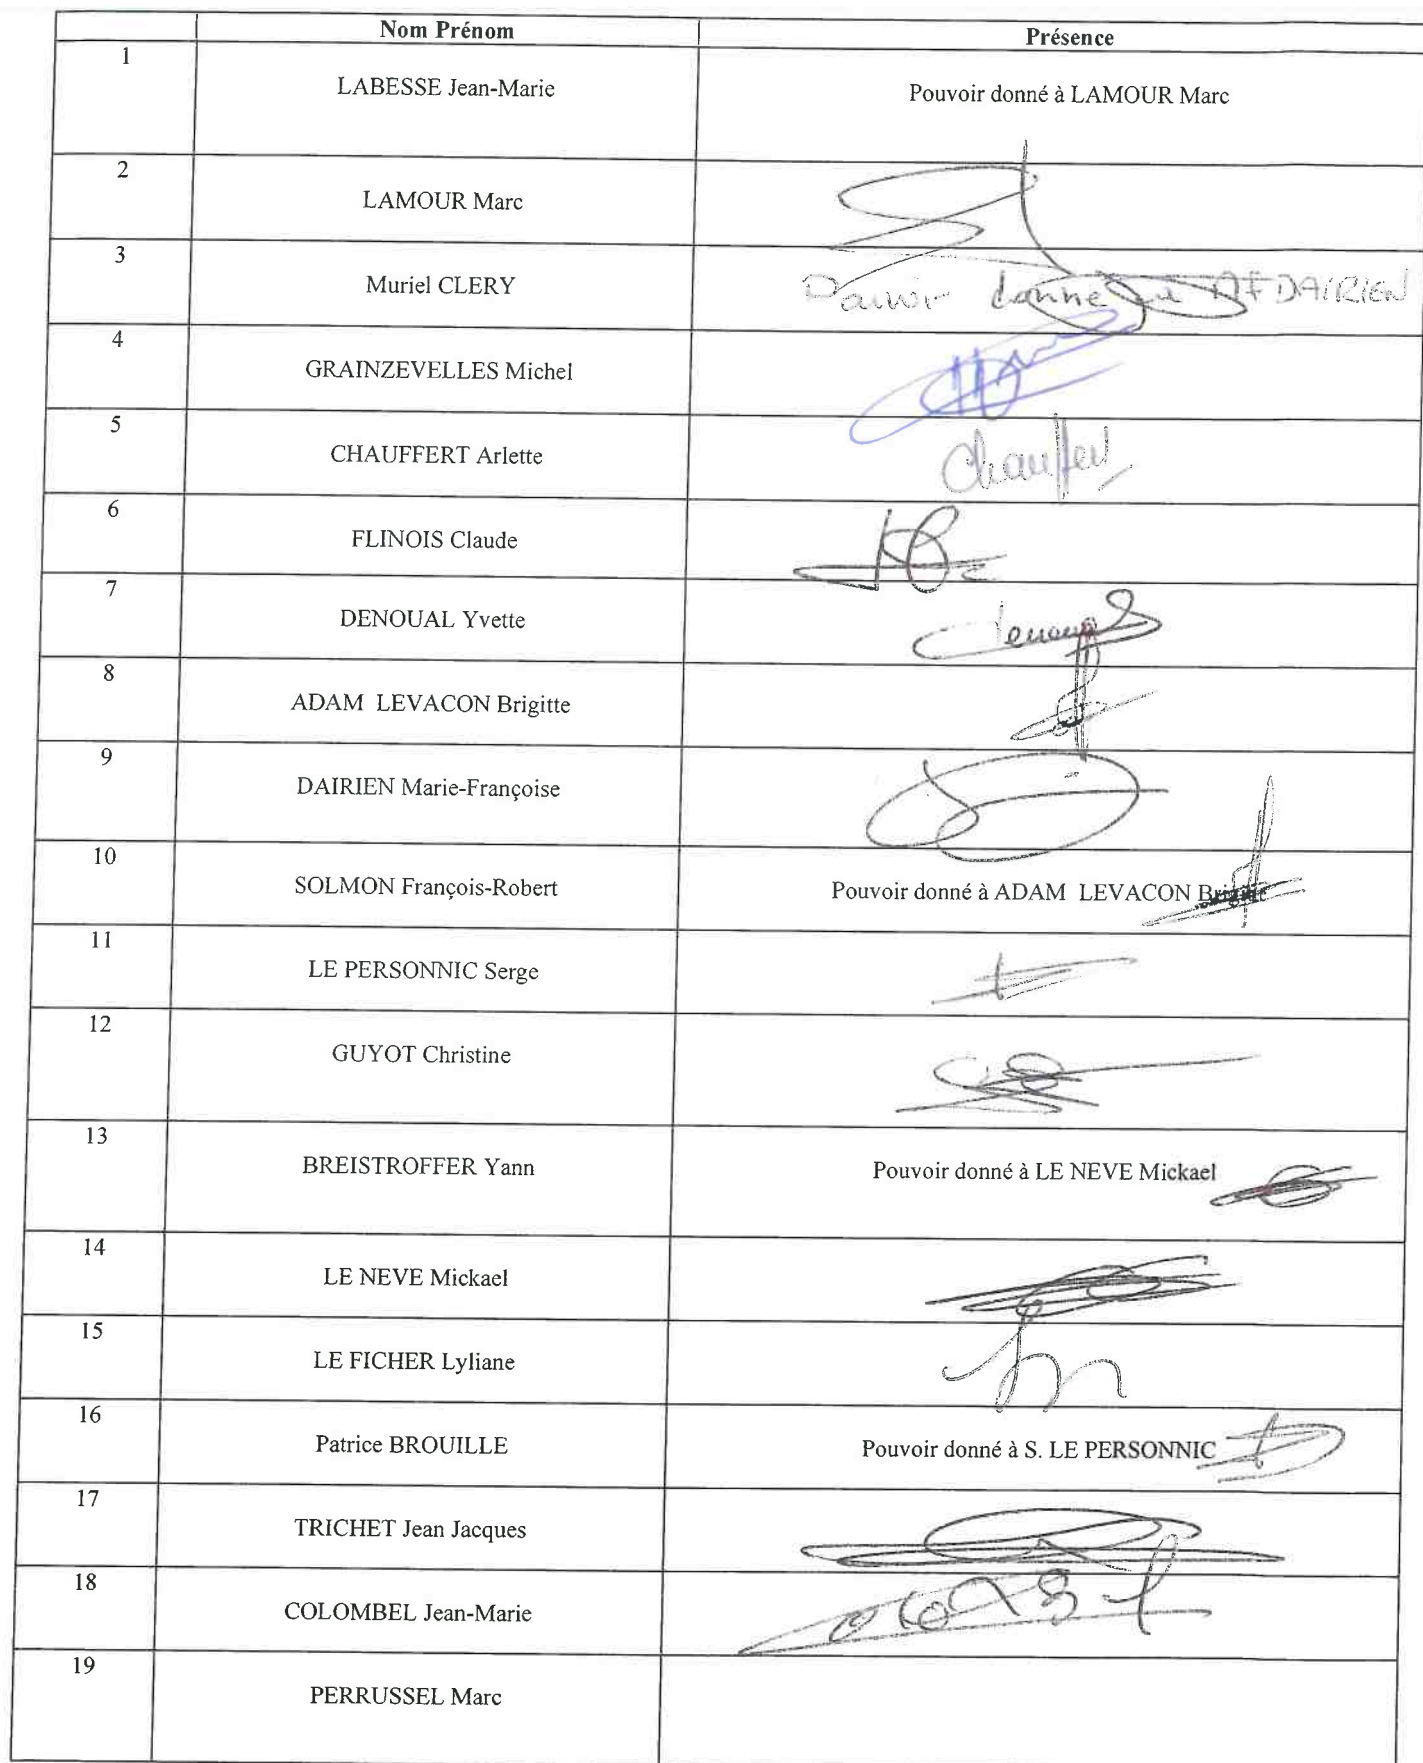 Nom Prénom Présence
1 LABESSE Jean-Marie Pouvoir donné à LAMOUR Marc
2 LAMOUR Marc
3 Muriel CLERY Pouvoir donné à MF DAIRIEN
4 GRAINZEVELLES Michel
5 CHAUFFERT Arlette Chauffert
6 FLINOIS Claude
7 DENOUAL Yvette
8 ADAM LEVACON Brigitte
9 DAIRIEN Marie-Françoise
10 SOLMON François-Robert Pouvoir donné à ADAM LEVACON Brigitte
11 LE PERSONNIC Serge
12 GUYOT Christine
13 BREISTROFFER Yann Pouvoir donné à LE NEVE Mickael
14 LE NEVE Mickael
15 LE FICHER Lyliane
16 Patrice BROUILLE Pouvoir donné à S. LE PERSONNIC
17 TRICHET Jean Jacques
18 COLOMBEL Jean-Marie
19 PERRUSSEL Marc